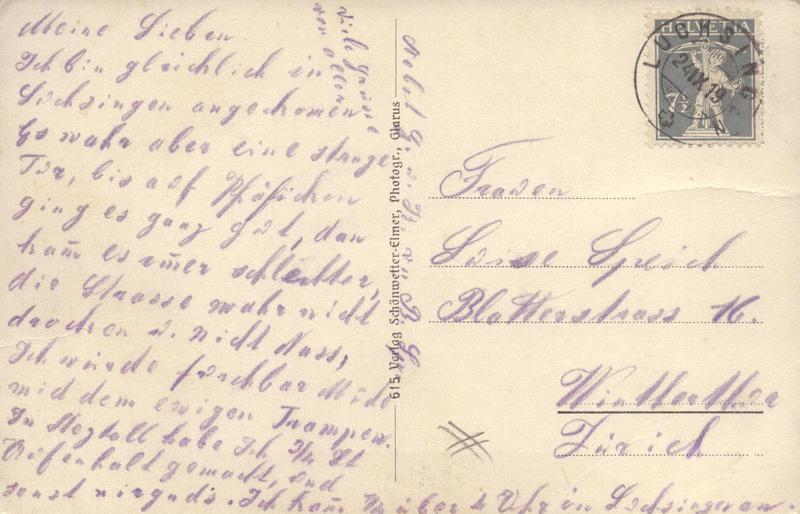 Meine Lieben
Ich bin glücklich in
Luchsingen angekomen
Es wahr aber eine strenge
Tur, bis auf Pfäfikon
ging es ganz gut, dan
kam es imer schlechter,
die Strasse wahr nicht
drochen u. nicht Nass,
Ich wurde furchbar Müde
mid dem ewigen Trampen.
In Sieztall habe Ich 3/4 St
Aufenhalt gemacht, und
sonst nirgnds. Ich kam 1/2 über 4 Uhr in Luchsingen an.
Viele Grüsse
von allen
615 Verlag Schönwetter-Elmer, Photogr., Glarus
HELVETIA
7½
LUCHSINGEN
24.IX.19
Frauen
Luise Speich
Blatterstrass 16.
Winterthur
Zürich